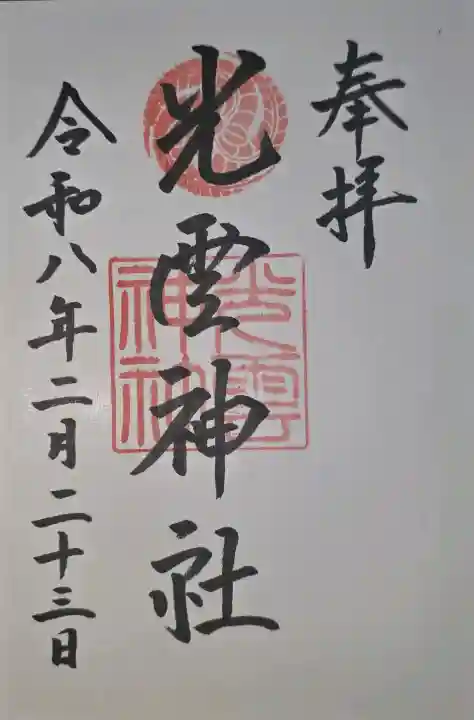 奉拝
光雲神社
光雲神社
令和八年二月二十三日